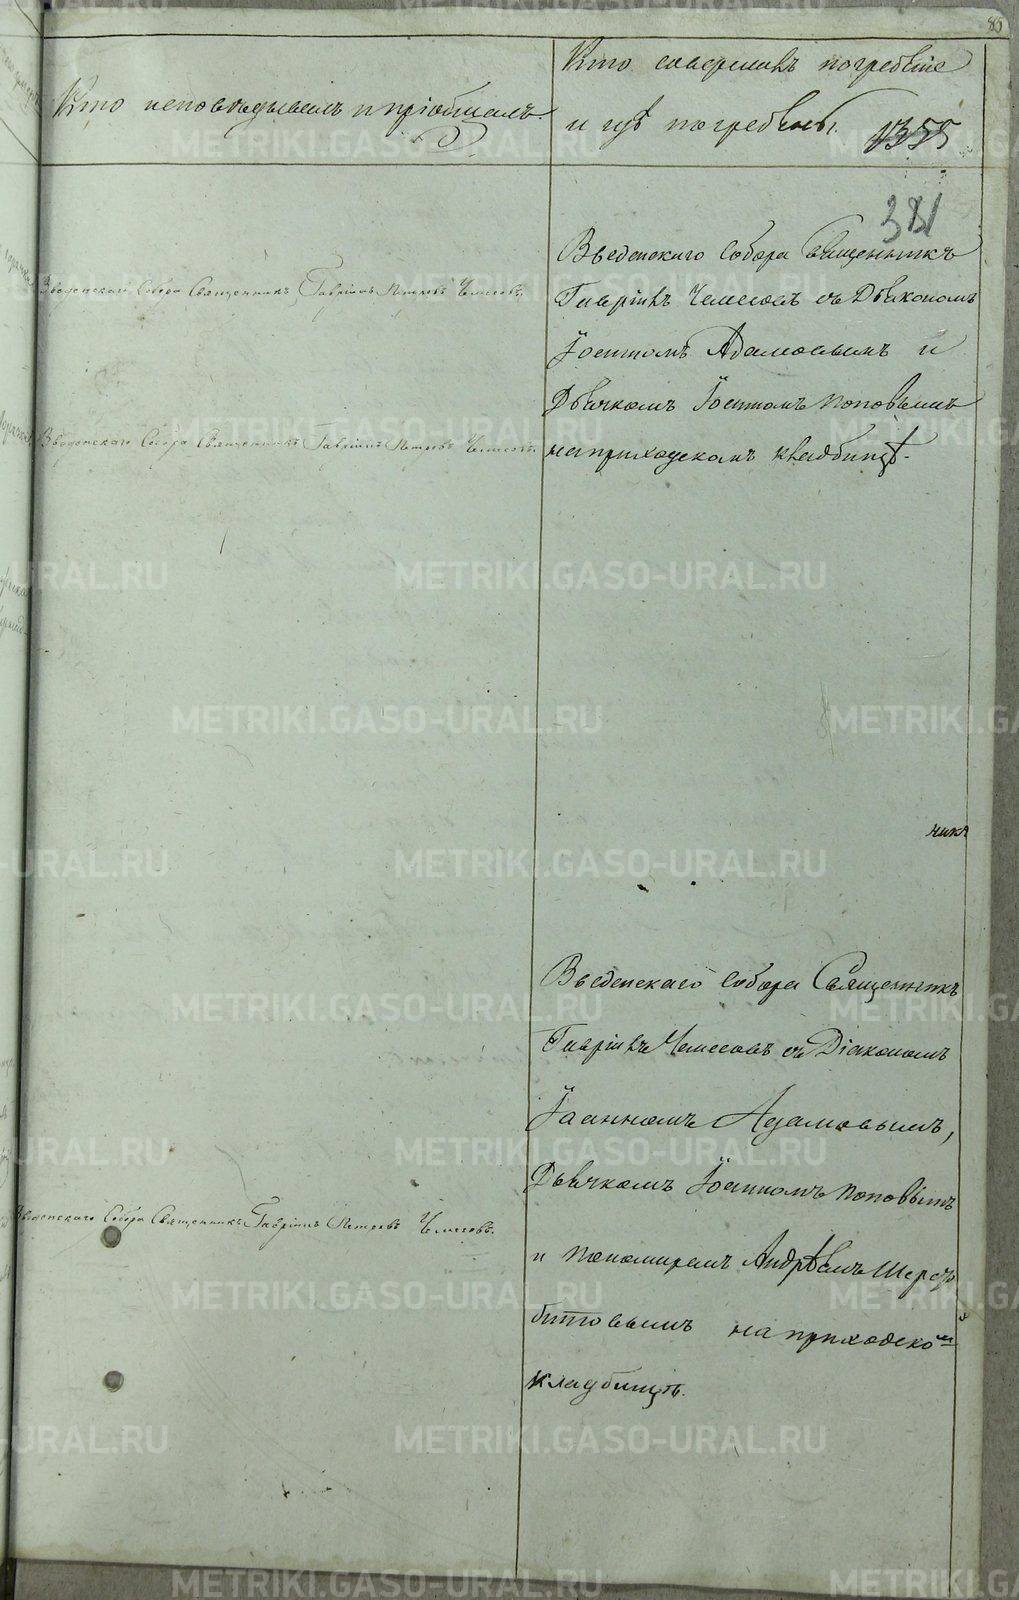 85
Кто исповѣдывалъ и пріобщалъ.
Кто совершалъ погребеніе
и гдѣ погребены.
1355
381
Введенскаго Собора Священникъ Гавріилъ Петровъ Чемесовъ.
Введенскаго Собора Священникъ Гавріилъ Петровъ Чемесовъ.
Введенскаго Собора Священникъ
Гавріилъ Чемесовъ съ Дьякономъ
Іоанномъ Адамовымъ и
Дьячкомъ Іоанномъ Поповымъ
на приходскомъ кладбищѣ.
чикъ
Введенскаго Собора Священникъ Гавріилъ Петровъ Чемесовъ.
Введенскаго Собора Священникъ
Гавріилъ Чемесовъ съ Діакономъ
Іоанномъ Адамовымъ,
Дьячкомъ Іоанномъ Поповымъ
и Пономаремъ Андрѣемъ
битовымъ на приходском
кладбищѣ.
METRIKI.GASO-URAL.RU